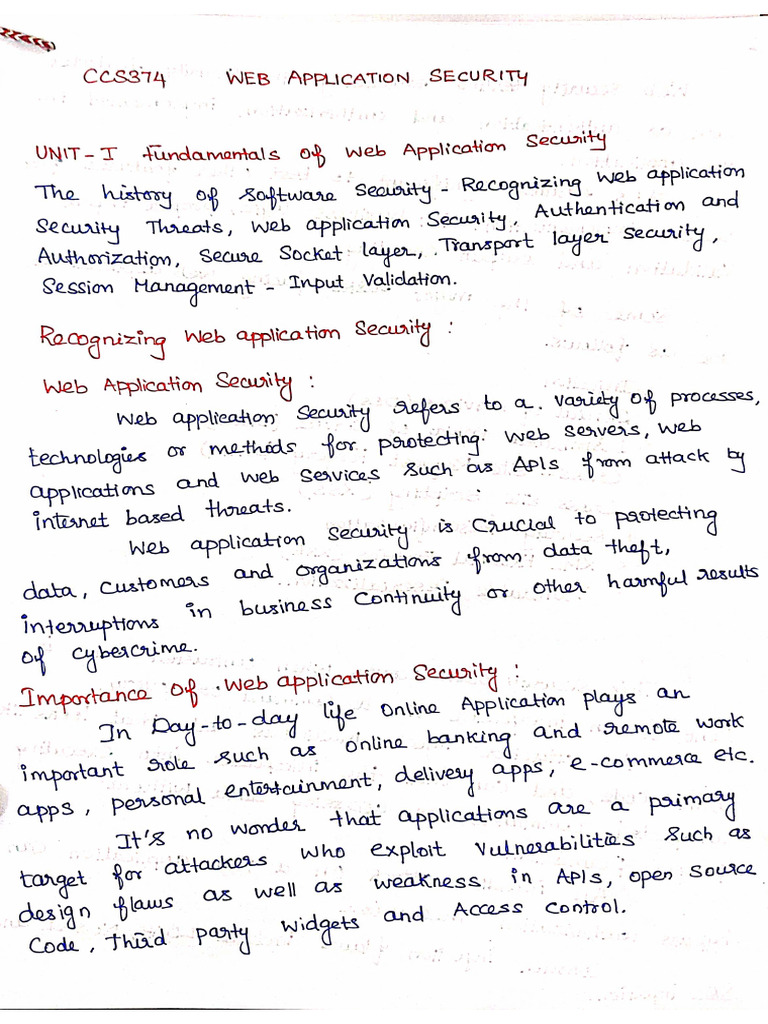 CCS374 WEB APPLICATION SECURITY
UNIT-I fundamentals of Web Application Security
The history of Software Security - Recognizing Web application
Security Threats, Web application Security, Authentication and
Authorization, Secure Socket layer, Transport layer Security,
Session Management - Input Validation.
Recognizing Web application Security :
Web Application Security :
Web application Security refers to a variety of processes,
technologies or methods for protecting web servers, web
applications and web Services Such as APIs from attack by
internet based threats.
Web application Security is Crucial to protecting
data, customers and organizations from data theft,
interruptions in business Continuity or other harmful results
of cybercrime.
Importance of Web application Security :
In Day-to-day life Online Application plays an
important role such as online banking and remote work
apps, personal entertainment, delivery apps, e-commerce etc.
It's no wonder that applications are a primary
target for attackers who exploit vulnerabilities such as
design flaws as well as weakness in APIs, open source
Code, third party widgets and Access Control.